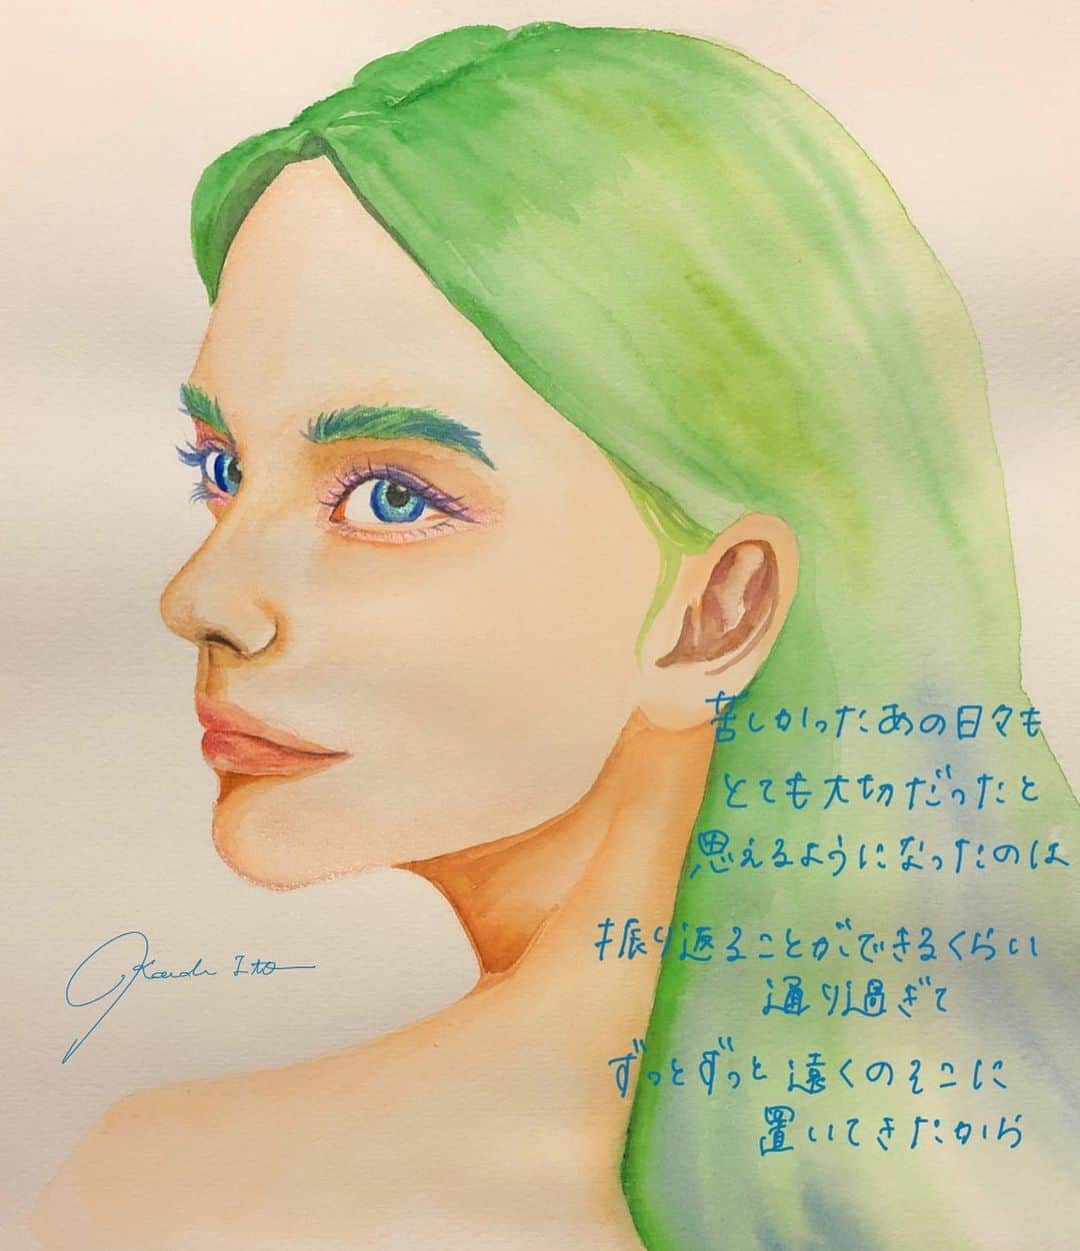 苦しかったあの日々も
とても大切だったと
思えるようになったのは
振り返ることができるくらい
通り過ぎて
ずっとずっと遠くのそこに
置いてきたから
Ito